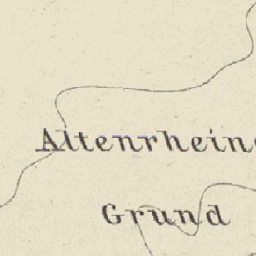 Altenrhein
Grund